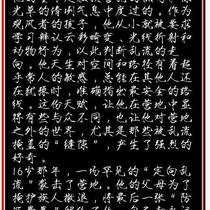 光草的停剃思中度过的。作为
观风者的孩子，他从小就被要求
学习辩认云彩畸变、光线折射和
动物行为，以此判断乱流的走
向。他天生对空间和路径有着超
乎常人的敏感，总能在其他人还
在犹豫时，准确指出最安全的路
线。这份天赋，让他在营地中显
得有些与众不同，也让对营地
之外的世界，尤其是那些被乱流
掩盖的“缝隙”，产生了强烈的
好奇。
16岁那年，一场罕见的“定向乱
流”袭击了营地。他的父母为了
掩护族人撤退，将最后一张“防